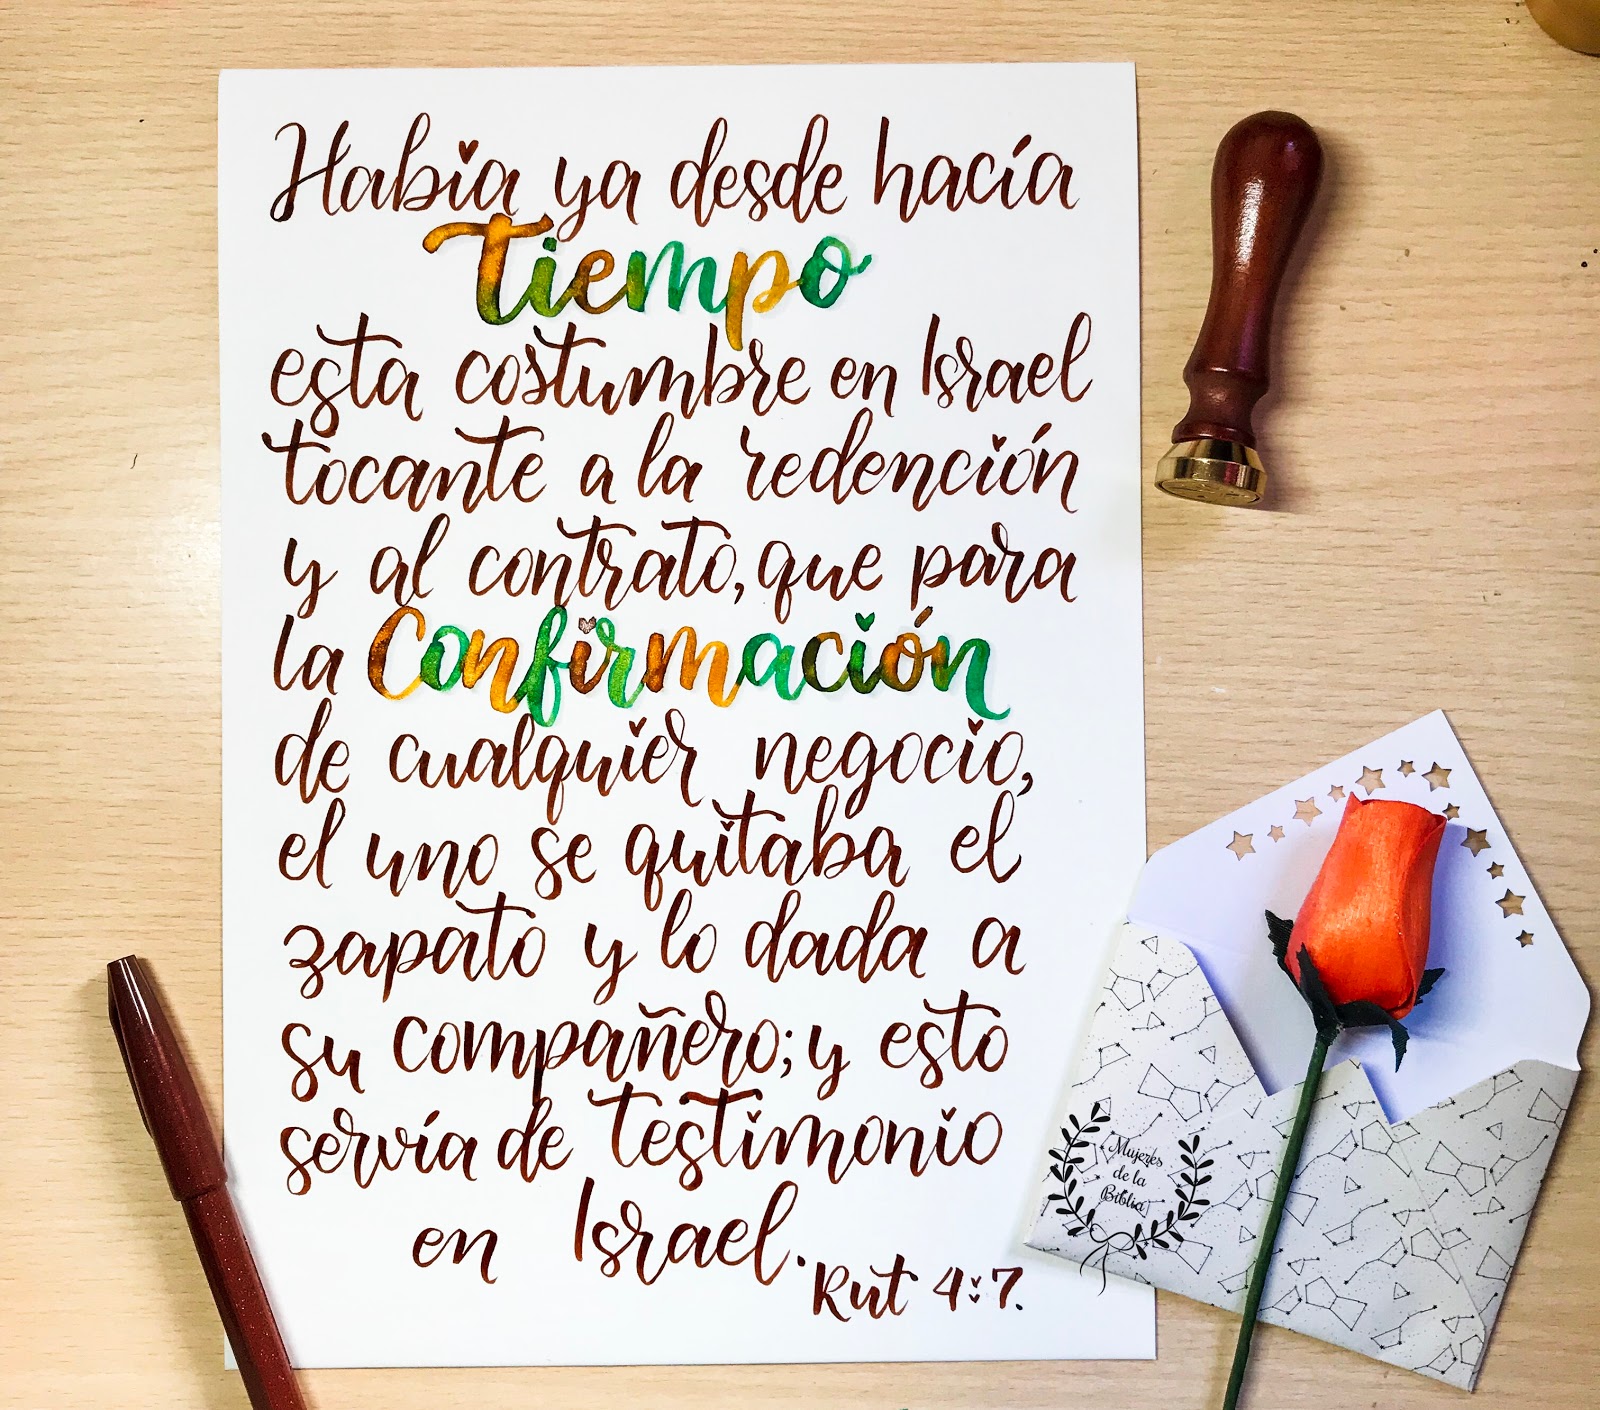 Había ya desde hacía
Tiempo
esta costumbre en Israel
tocante a la redención
y al contrato, que para
la Confirmación
de cualquier negocio,
el uno se quitaba el
zapato y lo dada a
su compañero; y esto
servía de testimonio
en Israel.
Rut 4:7.
Mujeres
de la
Biblia